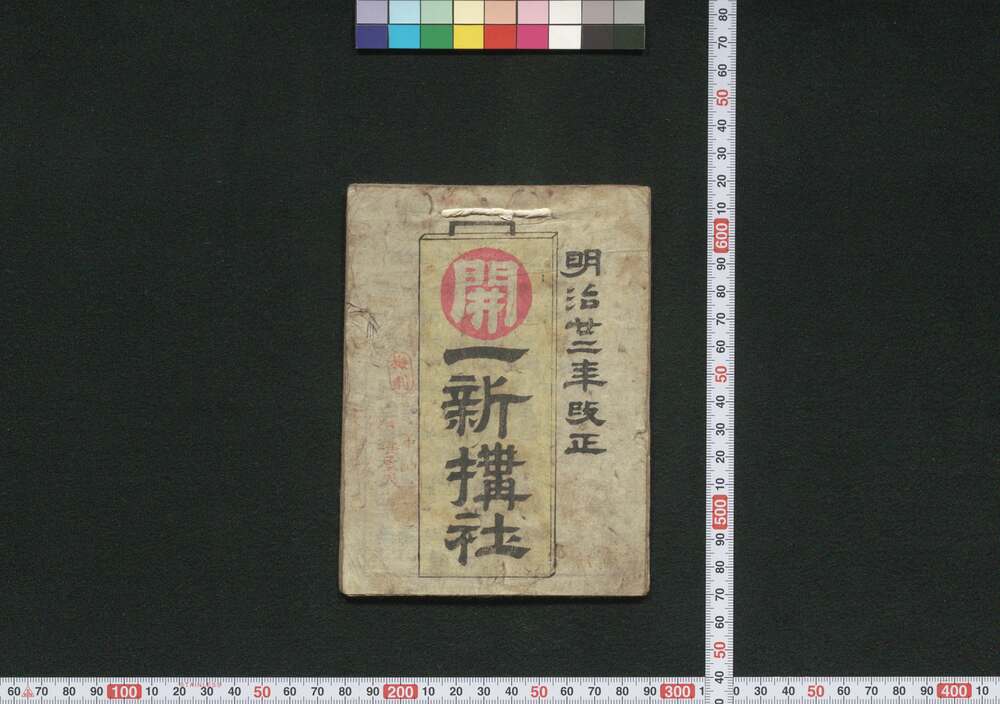 明治廿二年改正
開
一新搆社
80 70 60 50 40 30 20 10 600 90 80 70 60 50 40 30 20 10 500 90 80 70 60 50 40
60 70 80 90 100 10 20 30 40 50 60 70 80 90 200 10 20 30 40 50 60 70 80 90 300 30 40 50 60 70 80 90 400 10
STAINLESS